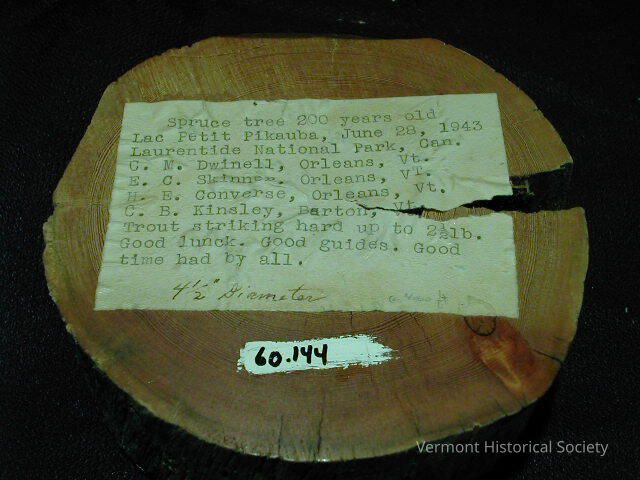 Spruce tree 200 years old
Lac Petit Pikauba, June 28, 1943
Laurentide National Park, Can.
C. M. Dwinell, Orleans, Vt.
E. C. Skinner. Orleans, VT.
H. E. Converse, Orleans, Vt.
C. B. Kinsley, Barton, Vt.
Trout striking hard up to 2½lb.
Good lunck. Good guides. Good
time had by all.
4½" Diameter
60.144
Vermont Historical Society